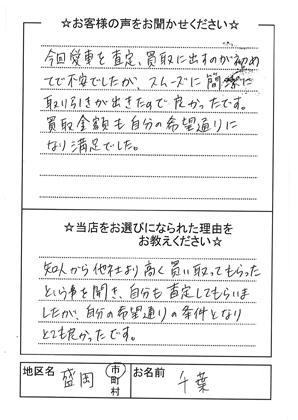 ☆お客様の声をお聞かせください☆
今回愛車を査定、買取に出すのが初め
てで不安でしたが、スムーズに簡潔に
取り引きが出きたので良かったです。
買取金額も自分の希望通りに
なり満足でした。
☆当店をお選びになられた理由を
お教えください☆
知人から他社より高く買い取ってもらった
という事を聞き、自分も査定してもらいま
したが、自分の希望通りの条件となり
とても良かったです。
地区名 盛岡 市町村 お名前 千葉